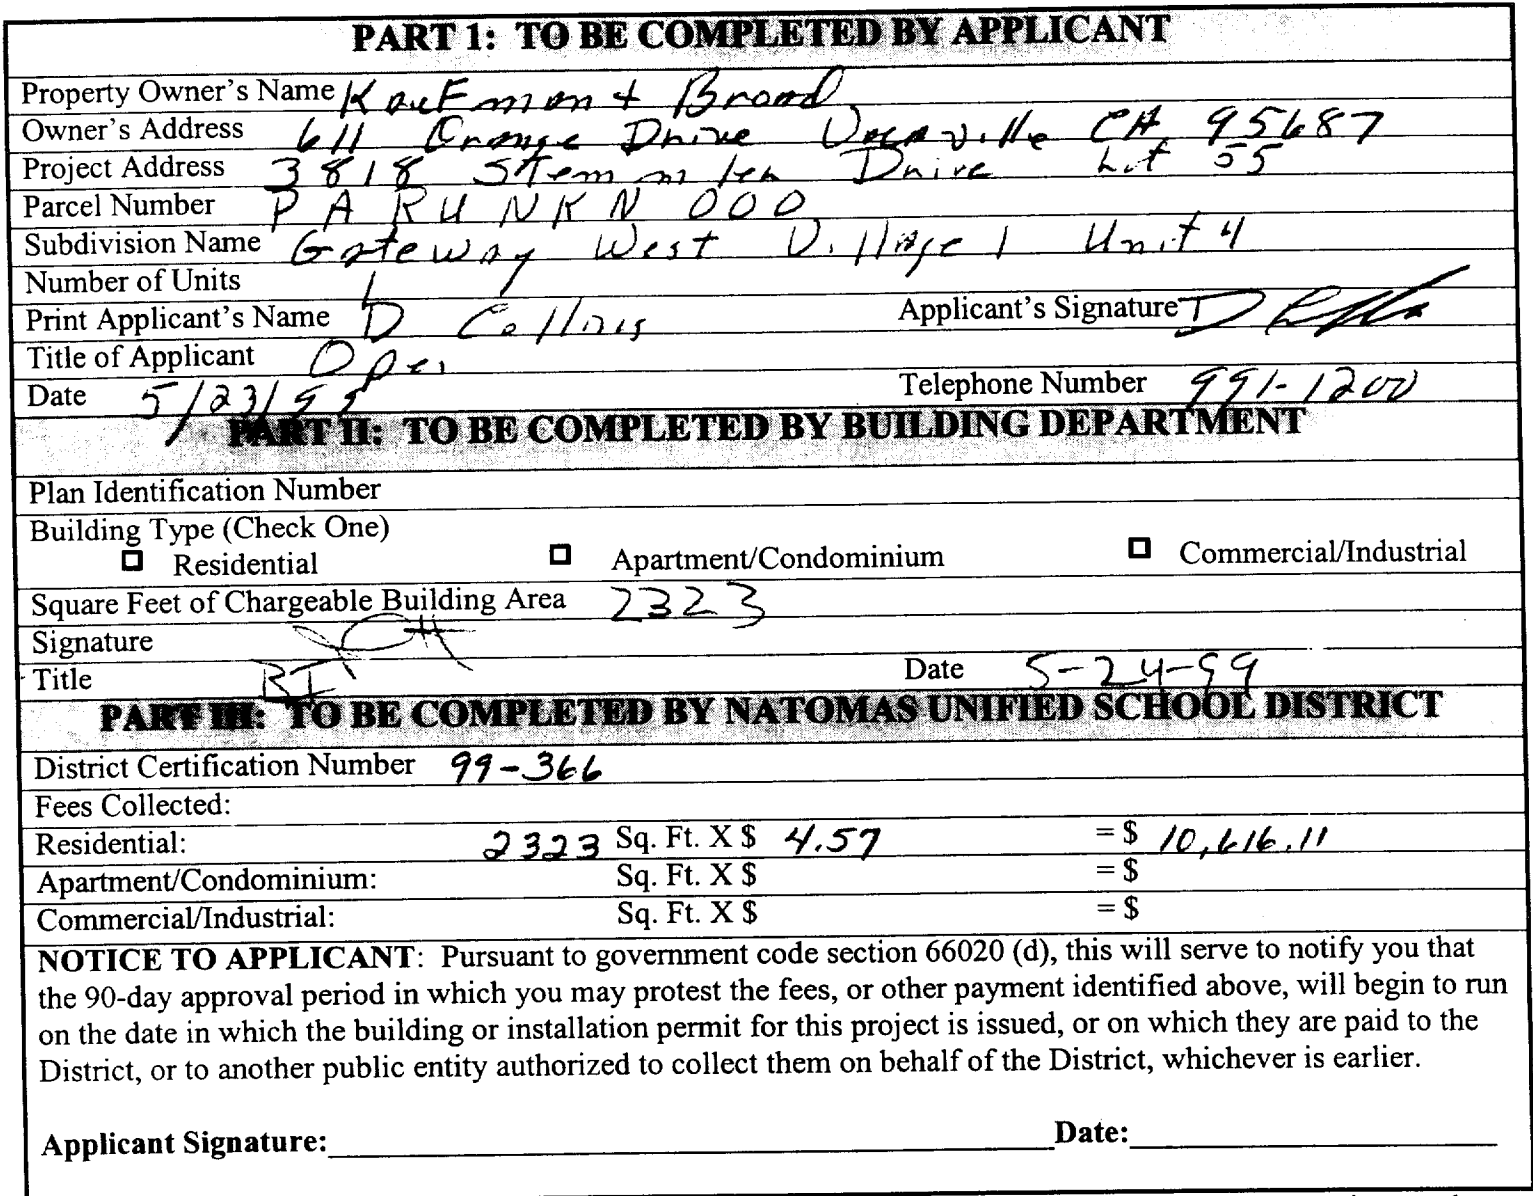 PART 1: TO BE COMPLETED BY APPLICANT
Property Owner's Name Kaufman + Broad
Owner's Address 611 Orange Drive Vacaville CA 95687
Project Address 3818 Stemmler Drive Lot 55
Parcel Number PARUNKN000
Subdivision Name Gateway West Village 1 Unit 4
Number of Units 1
Print Applicant's Name D Collins Applicant's Signature
Title of Applicant Oper
Date 5/23/99 Telephone Number 991-1200
PART II: TO BE COMPLETED BY BUILDING DEPARTMENT
Plan Identification Number
Building Type (Check One)
Residential Apartment/Condominium Commercial/Industrial
Square Feet of Chargeable Building Area 2323
Signature
Title BI Date 5-24-99
PART III: TO BE COMPLETED BY NATOMAS UNIFIED SCHOOL DISTRICT
District Certification Number 99-366
Fees Collected:
Residential: 2323 Sq. Ft. X $ 4.57 = $ 10,616.11
Apartment/Condominium: Sq. Ft. X $ = $
Commercial/Industrial: Sq. Ft. X $ = $
NOTICE TO APPLICANT: Pursuant to government code section 66020 (d), this will serve to notify you that
the 90-day approval period in which you may protest the fees, or other payment identified above, will begin to run
on the date in which the building or installation permit for this project is issued, or on which they are paid to the
District, or to another public entity authorized to collect them on behalf of the District, whichever is earlier.
Applicant Signature: Date: